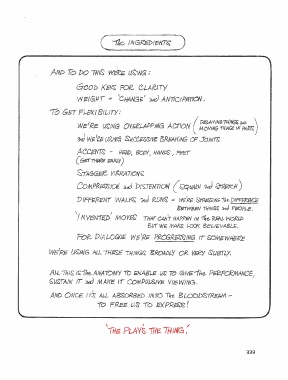 THE INGREDIENTS
AND TO DO THIS WE'RE USING:
GOOD KEYS FOR CLARITY
WEIGHT - 'CHANGE' and ANTICIPATION.
TO GET FLEXIBILITY:
WE'RE USING OVERLAPPING ACTION (DELAYING THINGS and
MOVING THINGS IN PARTS)
and WE'RE USING SUCCESSIVE BREAKING OF JOINTS
ACCENTS - HEAD, BODY, HANDS, FEET
(GET THERE EARLY)
STAGGER VIBRATIONS
COMPRESSION and DISTENTION (SQUASH and STRETCH)
DIFFERENT WALKS and RUNS - WE'RE STRESSING THE DIFFERENCE
BETWEEN THINGS and PEOPLE.
'INVENTED' MOVES THAT CAN'T HAPPEN IN THE REAL WORLD
BUT WE MAKE LOOK BELIEVABLE.
FOR DIALOGUE WE'RE PROGRESSING IT SOMEWHERE
WE'RE USING ALL THESE THINGS BROADLY OR VERY SUBTLY.
ALL THIS IS THE ANATOMY TO ENABLE US TO GIVE THE PERFORMANCE,
SUSTAIN IT and MAKE IT COMPULSIVE VIEWING.
AND ONCE IT'S ALL ABSORBED INTO THE BLOODSTREAM -
TO FREE US TO EXPRESS!
'THE PLAY'S THE THING.'
333